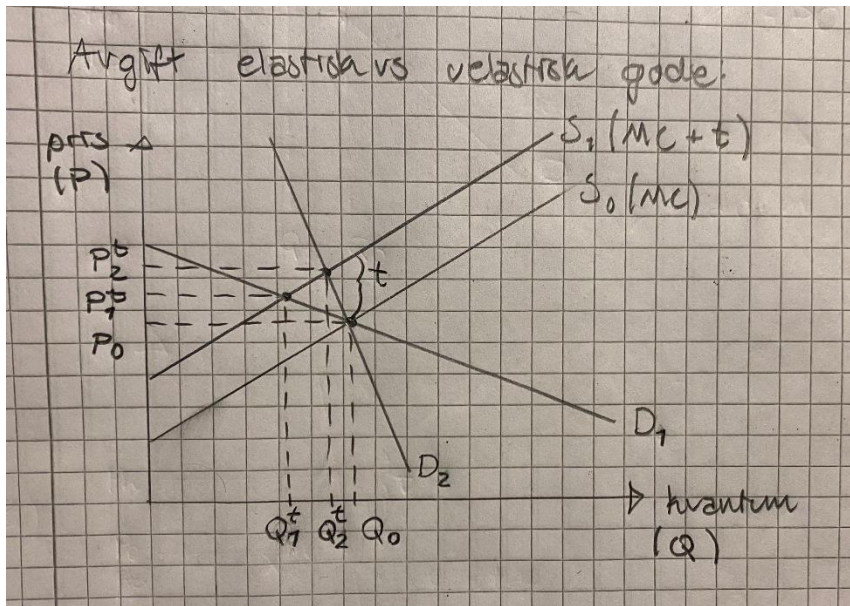 Avgift elastisk vs uelastisk gode.
pris
(P)
S₁ (MC + t)
S₀ (MC)
P₂ᵗ
t
P₁ᵗ
P₀
D₁
D₂
Q₁ᵗ Q₂ᵗ Q₀
kvantum
(Q)